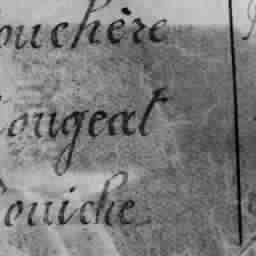 ouchère
ougeat
ouiche